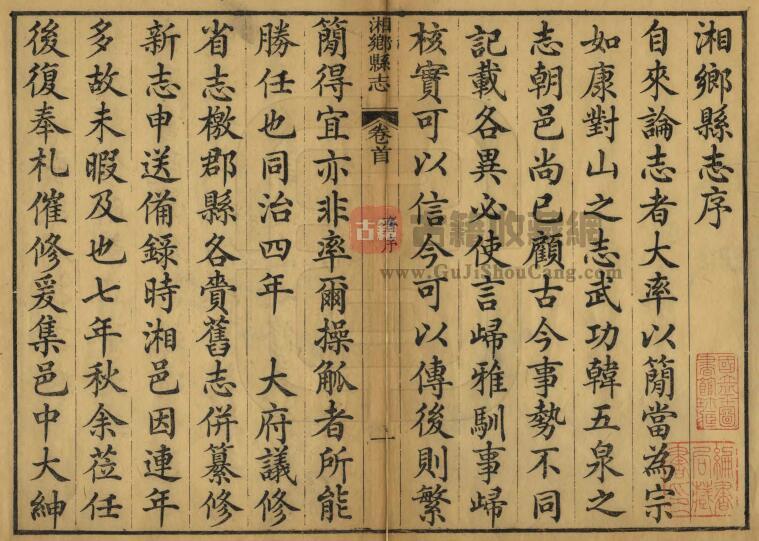 湘鄉縣志序
自來論志者大率以簡當為宗
如康對山之志武功韓五泉之
志朝邑尚已顧古今事勢不同
記載各異必使言歸雅馴事歸
核實可以信今可以傳後則繁
湘鄉縣志
卷首
一
簡得宜亦非率爾操觚者所能
勝任也同治四年 大府議修
省志檄郡縣各賫舊志併纂修
新志申送備錄時湘邑因連年
多故未暇及也七年秋余莅任
後復奉札催修爰集邑中大紳
古籍
古籍收藏網
www.GuJiShouCang.com